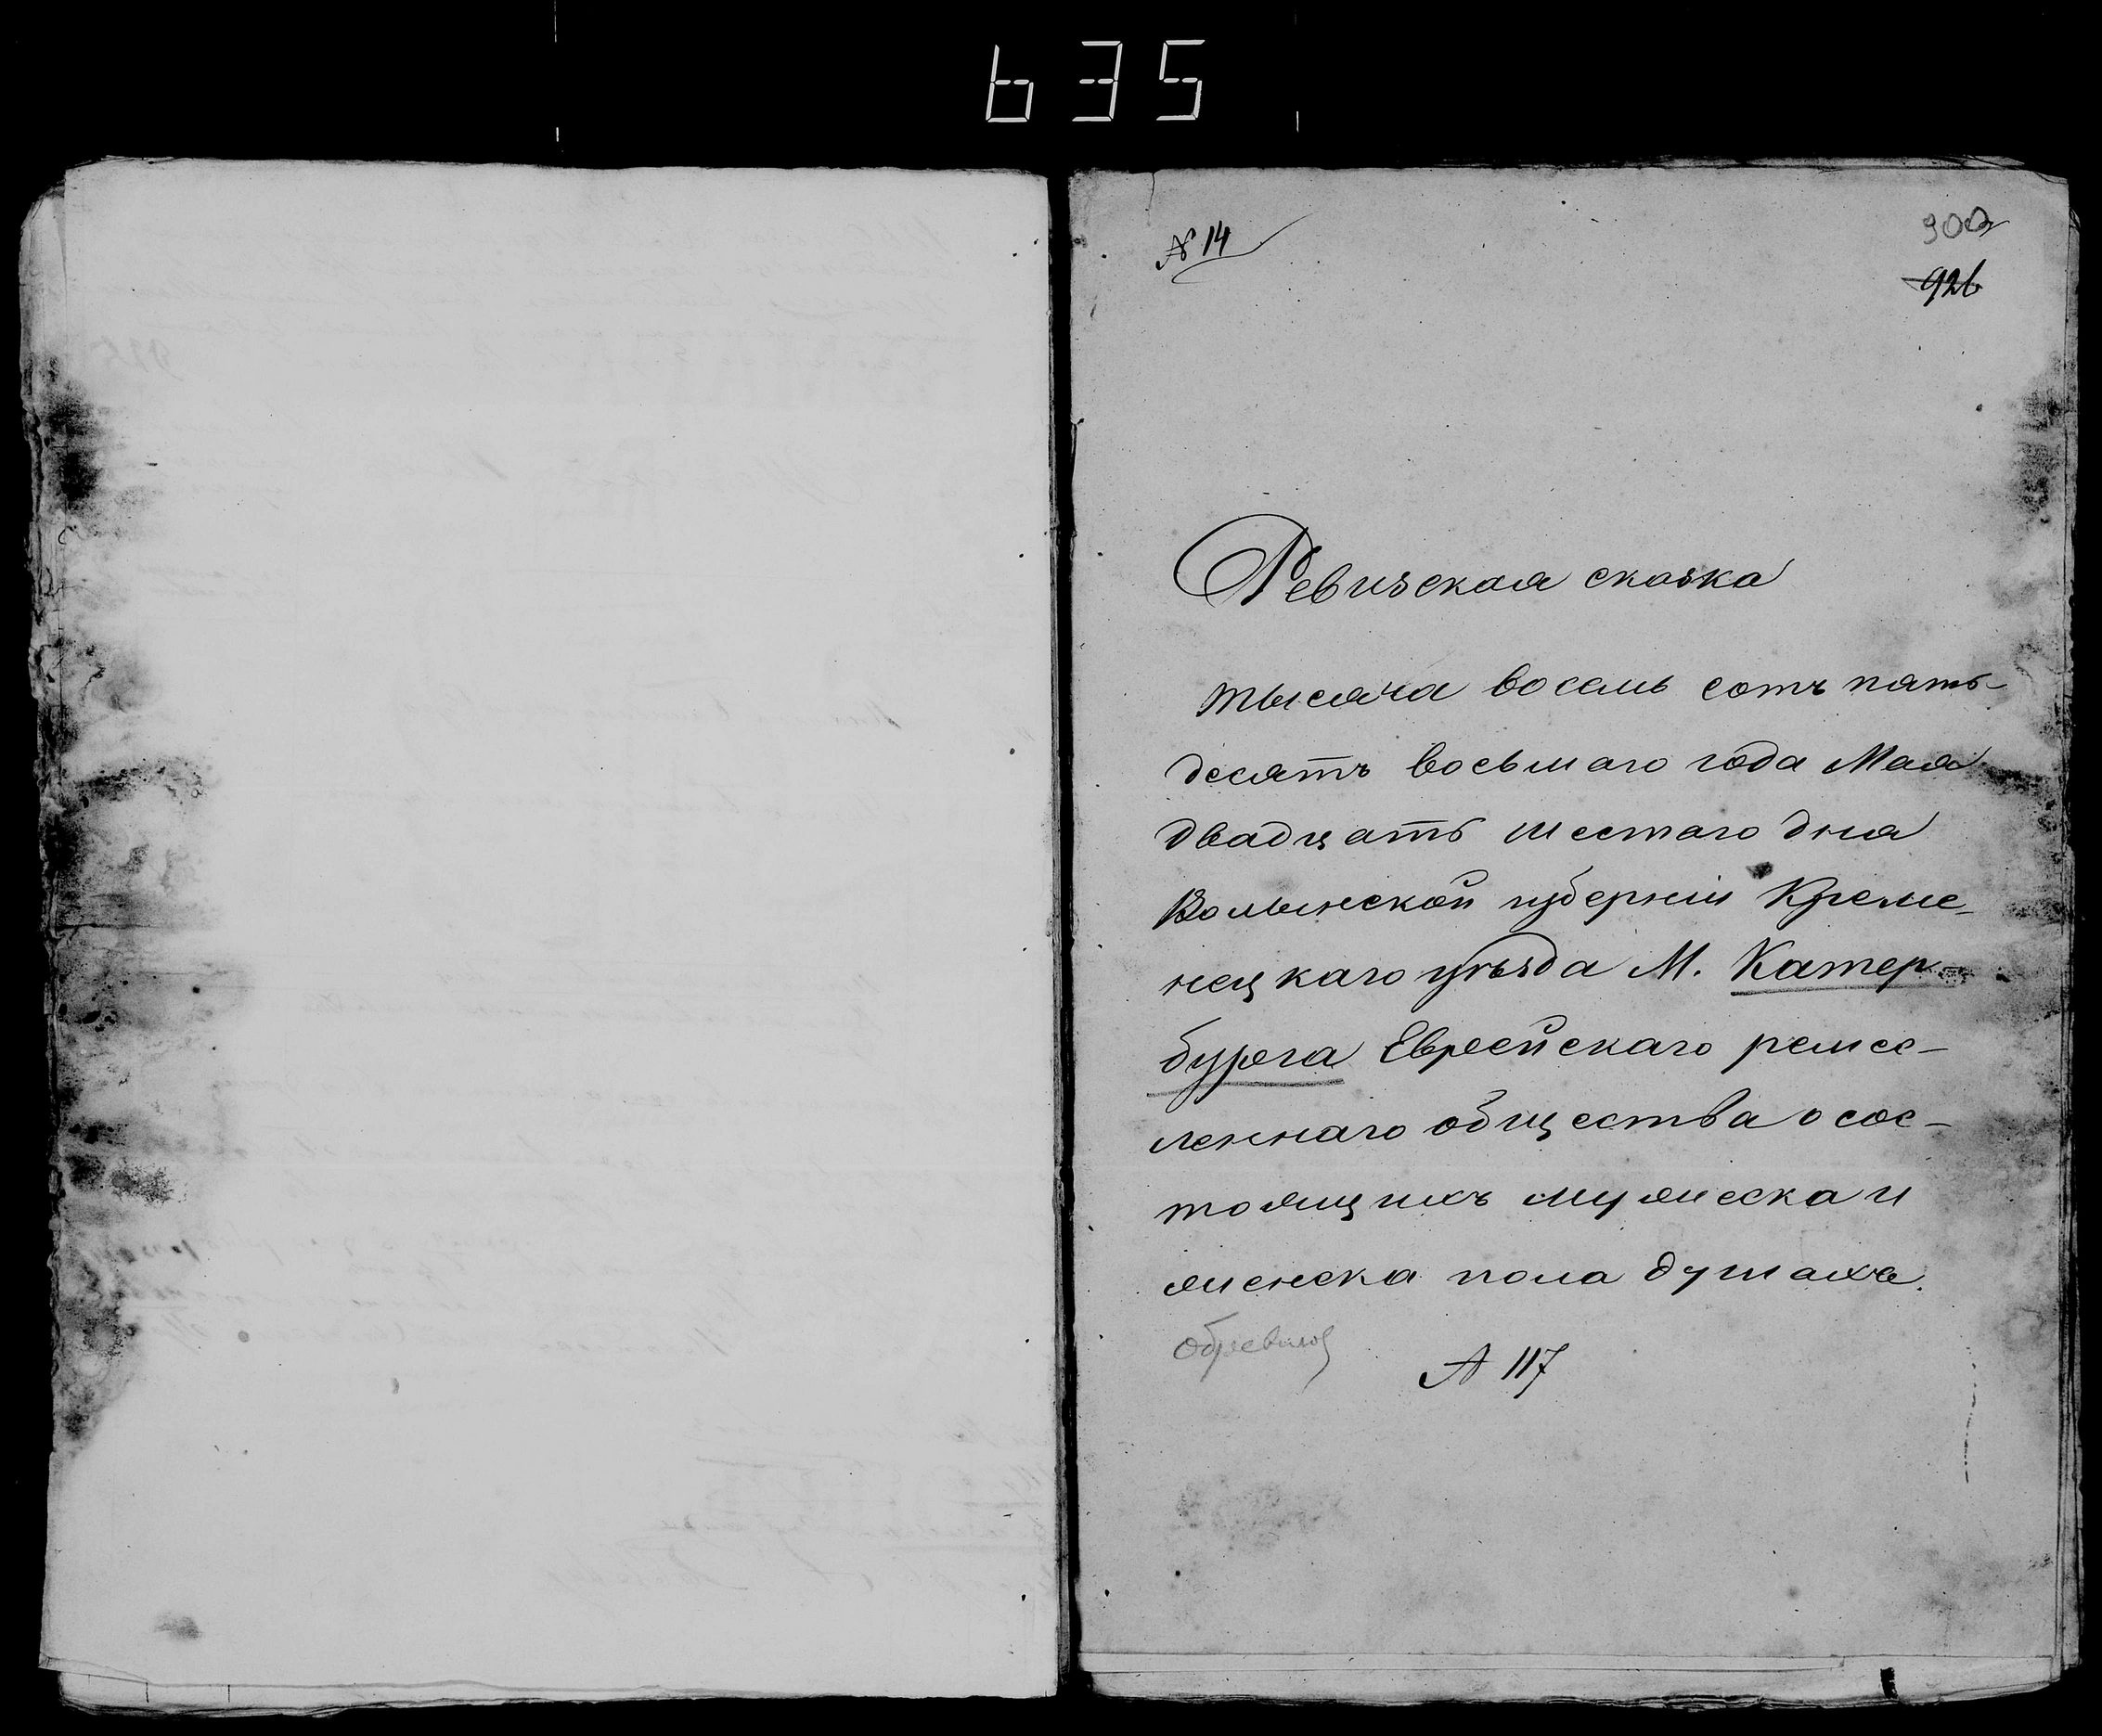 635
№ 14
900
926
Ревизская сказка
тысяча восемь сотъ пять-
десятъ восьмаго года Мая
двадцать шестаго дня
Волынской губерніи Креме-
нецкаго уѣзда М. Катер-
бурга Еврейскаго ремес-
леннаго общества о сос-
тоящихъ мужеска и
женска пола душахъ.
№ 117